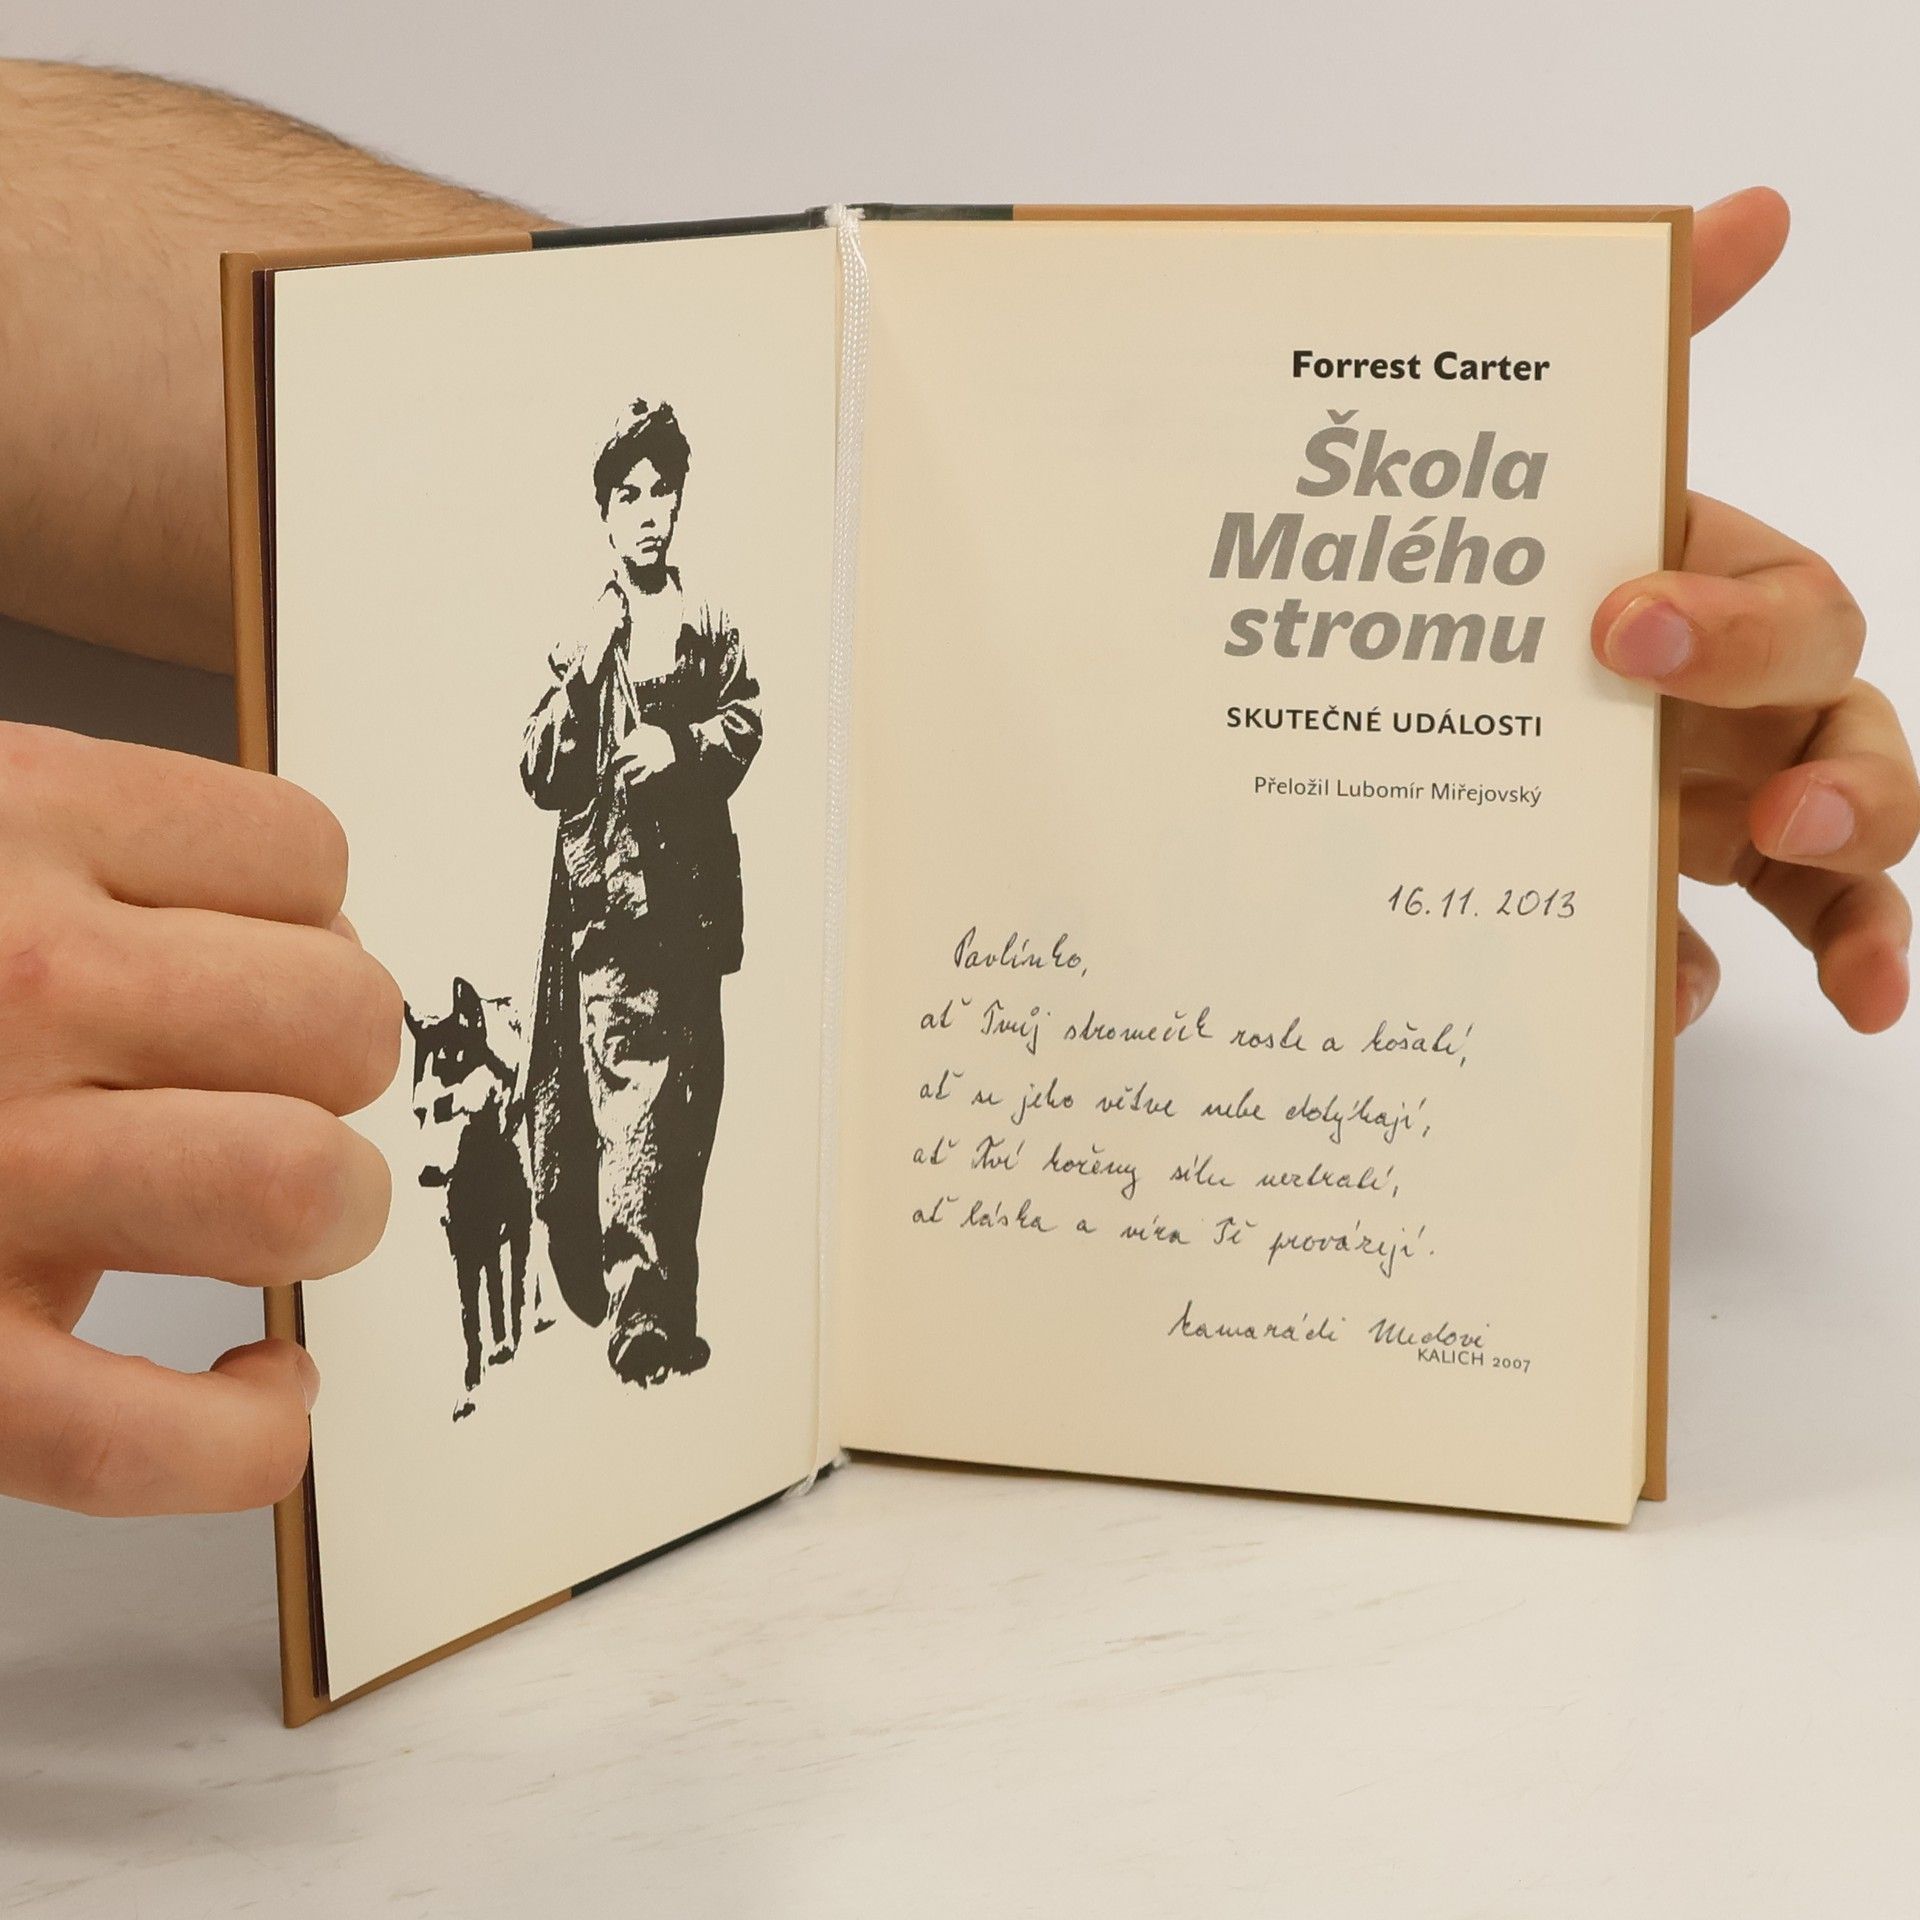 Forrest Carter
Škola
Malého
stromu
SKUTEČNÉ UDÁLOSTI
Přeložil Lubomír Miřejovský
16.11. 2013
Pavlínko,
ať Tvůj stromeček roste a košatí,
ať se jeho větve nebe dotýkají,
ať Tví kořeny sílu neztratí,
ať láska a víra Tě provázejí.
kamarádi Medovi
KALICH 2007